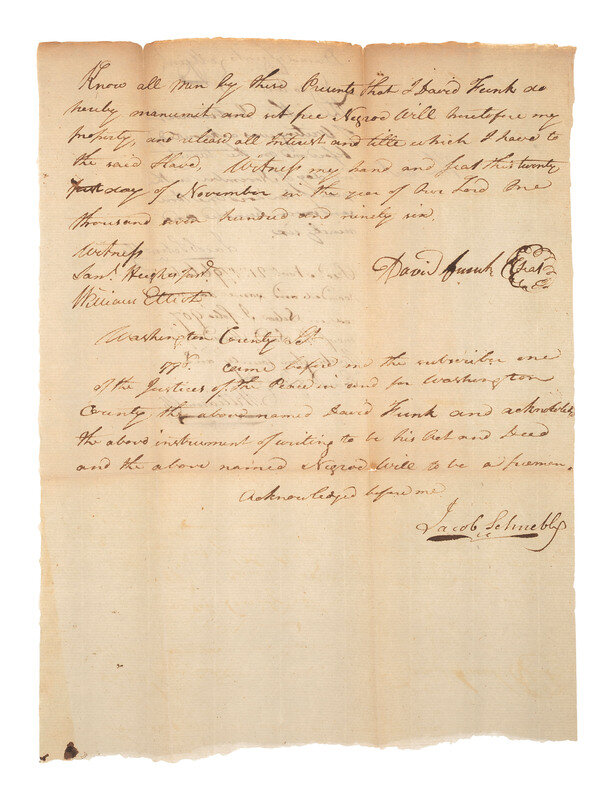 Know all Men by these Presents that I David Funk do
hereby manumit and set free Negroe Will heretofore my
property, and release all Interest and title which I have to
the said Slave, Witness my hand and seal this twenty
day of November in the year of Our Lord One
thousand seven hundred and ninety six.
Witness
Saml. Hughes Junr.
David Funk Seal
William Elliott
Washington County Sct.
came before me the subscriber one
of the Justices of the Peace in and for Washington
County the above named David Funk and acknowled
the above instrument of writing to be his Act and Deed
and the above named Negroe Will to be a freeman.
Acknowledged before me
Jacob Schnebly